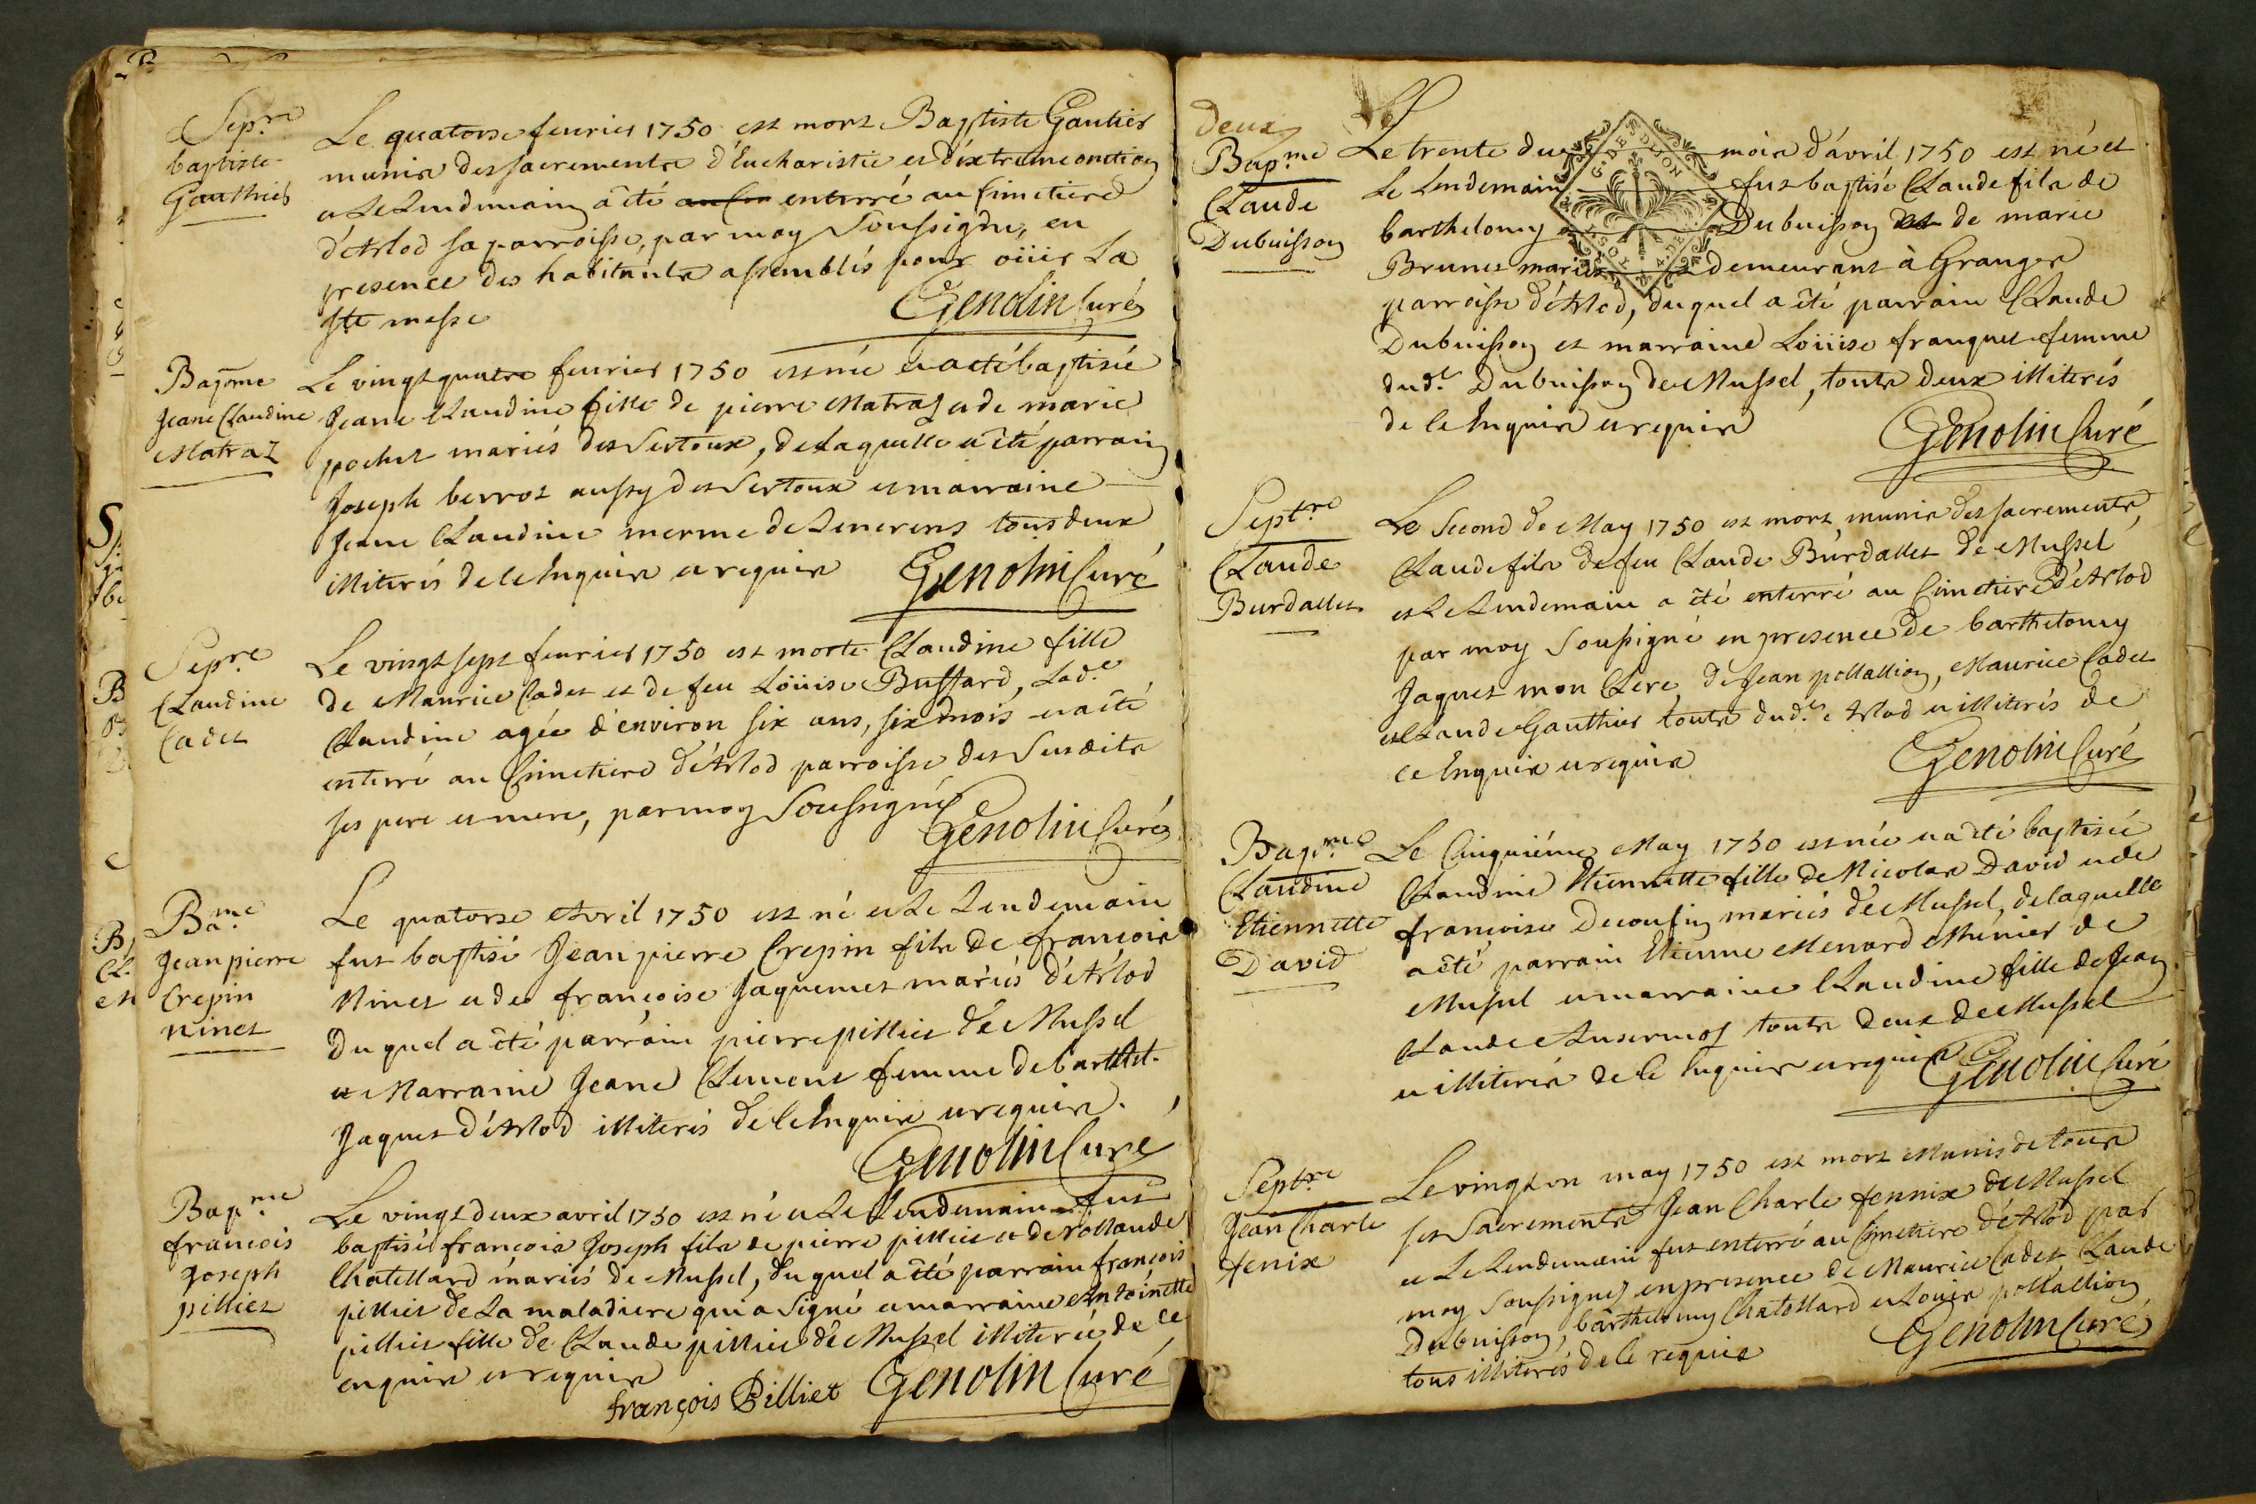 Sepre
baptiste
Gauthier
Le quatorse feurier 1750 est mort Baptiste Gautier
munis des sacrements d'Eucharistie et d'éxtreme onction
et Le Lendemain a été au Cim enterré au Cimetiere
d'Arlod sa parroisse, par moy Soussigné, en
presence des habitants assemblés pour oüir La
Ste messe
Genolin Curé
Bapme
Jeane Claudine
Matraz
Le vingt quatre feurier 1750 est née et a été baptisée
Jeane Claudine fille de pierre Matraz et de marie
pochet mariés des Sertoux, de laquelle a été parrain
Joseph berrot aussy des Sertoux et marraine
Jeane Claudine merme de Lenerens tous deux
illiterés de ce Enquis et requis
Genolin Curé
Sepre
Claudine
Cadet
Le vingt sept feurier 1750 est morte Claudine fille
de Maurice Cadet et de feu Loüise Buffard, Lade
Claudine agée d'environ six ans, six mois et a été
enterré au Cimetiere d'Arlod parroisse des Susdits
ses pere et mere, par moy Soussigné
Genolin Curé
Bame
Jean pierre
Crepin
ninet
Le quatorse Avril 1750 est né et Le Lendemain
fut baptisé Jean pierre Crepin fils de françois
Ninet et de françoise Jaquemet mariés d'Arlod
Du quel a été parrain pierre pilliet de Mussel
et Marraine Jeane Clement femme de barthel.
Jaquet d'Arlod illiterés de ce Enquis et requis.
Genolin Curé
Bapme
francois
Joseph
pilliet
Le vingt deux avril 1750 est né et Le Lendemain fut
baptisé françois Joseph fils de pierre pilliet et de rollande
Chatellard mariés de Mussel, du quel a été parrain françois
pilliet de La maladiere qui a Signé et marraine Antoinette
pilliet fille de Claude pilliet de Mussel illiterée de ce
enquis et requis
françois Pilliet
Genolin Curé
deux
Bapme
Claude
Dubuisson
Le trente du mois d'avril 1750 est né et
Le Lendemain fut baptisé Claude fils de
barthelemy Dubuisson et de marie
Brunet mariés demeurant à Granges
parroisse d'Arlod, duquel a été parrain Claude
Dubuisson et marraine Loüise franquet femme
dudt Dubuisson de Mussel, touts deux illiterés
de ce Enquis et requis
G. DE DIJON
Genolin Curé
Septre
Claude
Burdallet
Le Second de May 1750 est mort munis des sacrements
Claude fils de feu Claude Burdallet de Mussel
et Le Lendemain a été enterré au Cimetiere d'Arlod
par moy Soussigné en presence de barthelemy
Jaquet mon Clerc, de Jean pollallion, Maurice Cadet
et Claude Gauthier touts dudt Arlod et illiterés de
ce Enquis et requis
Genolin Curé
Bapme
Claudine
Etiennette
David
Le Cinquiéme May 1750 est née et a été baptisée
Claudine Etiennette fille de Nicolas David et de
françoise Decousin mariés de Mussel, de laquelle
a été parrain Etienne Menard Munier de
Mussel et marraine Claudine fille de Jean
Claude Ansermoz touts deux de Mussel
et illiterés de ce Enquis et requis
Genolin Curé
Septre
Jean Charle
fenix
Le vingt un may 1750 est mort Munis de tous
ses Sacrements Jean Charle fennix de Mussel
et Le Lendemain fut enterré au Cimetiere d'Arlod par
moy Soussigné en presence de Maurice Cadet Claude
Dubuisson, barthelemy Chatellard et Louis pollallion
tous illiterés de ce requis
Genolin Curé